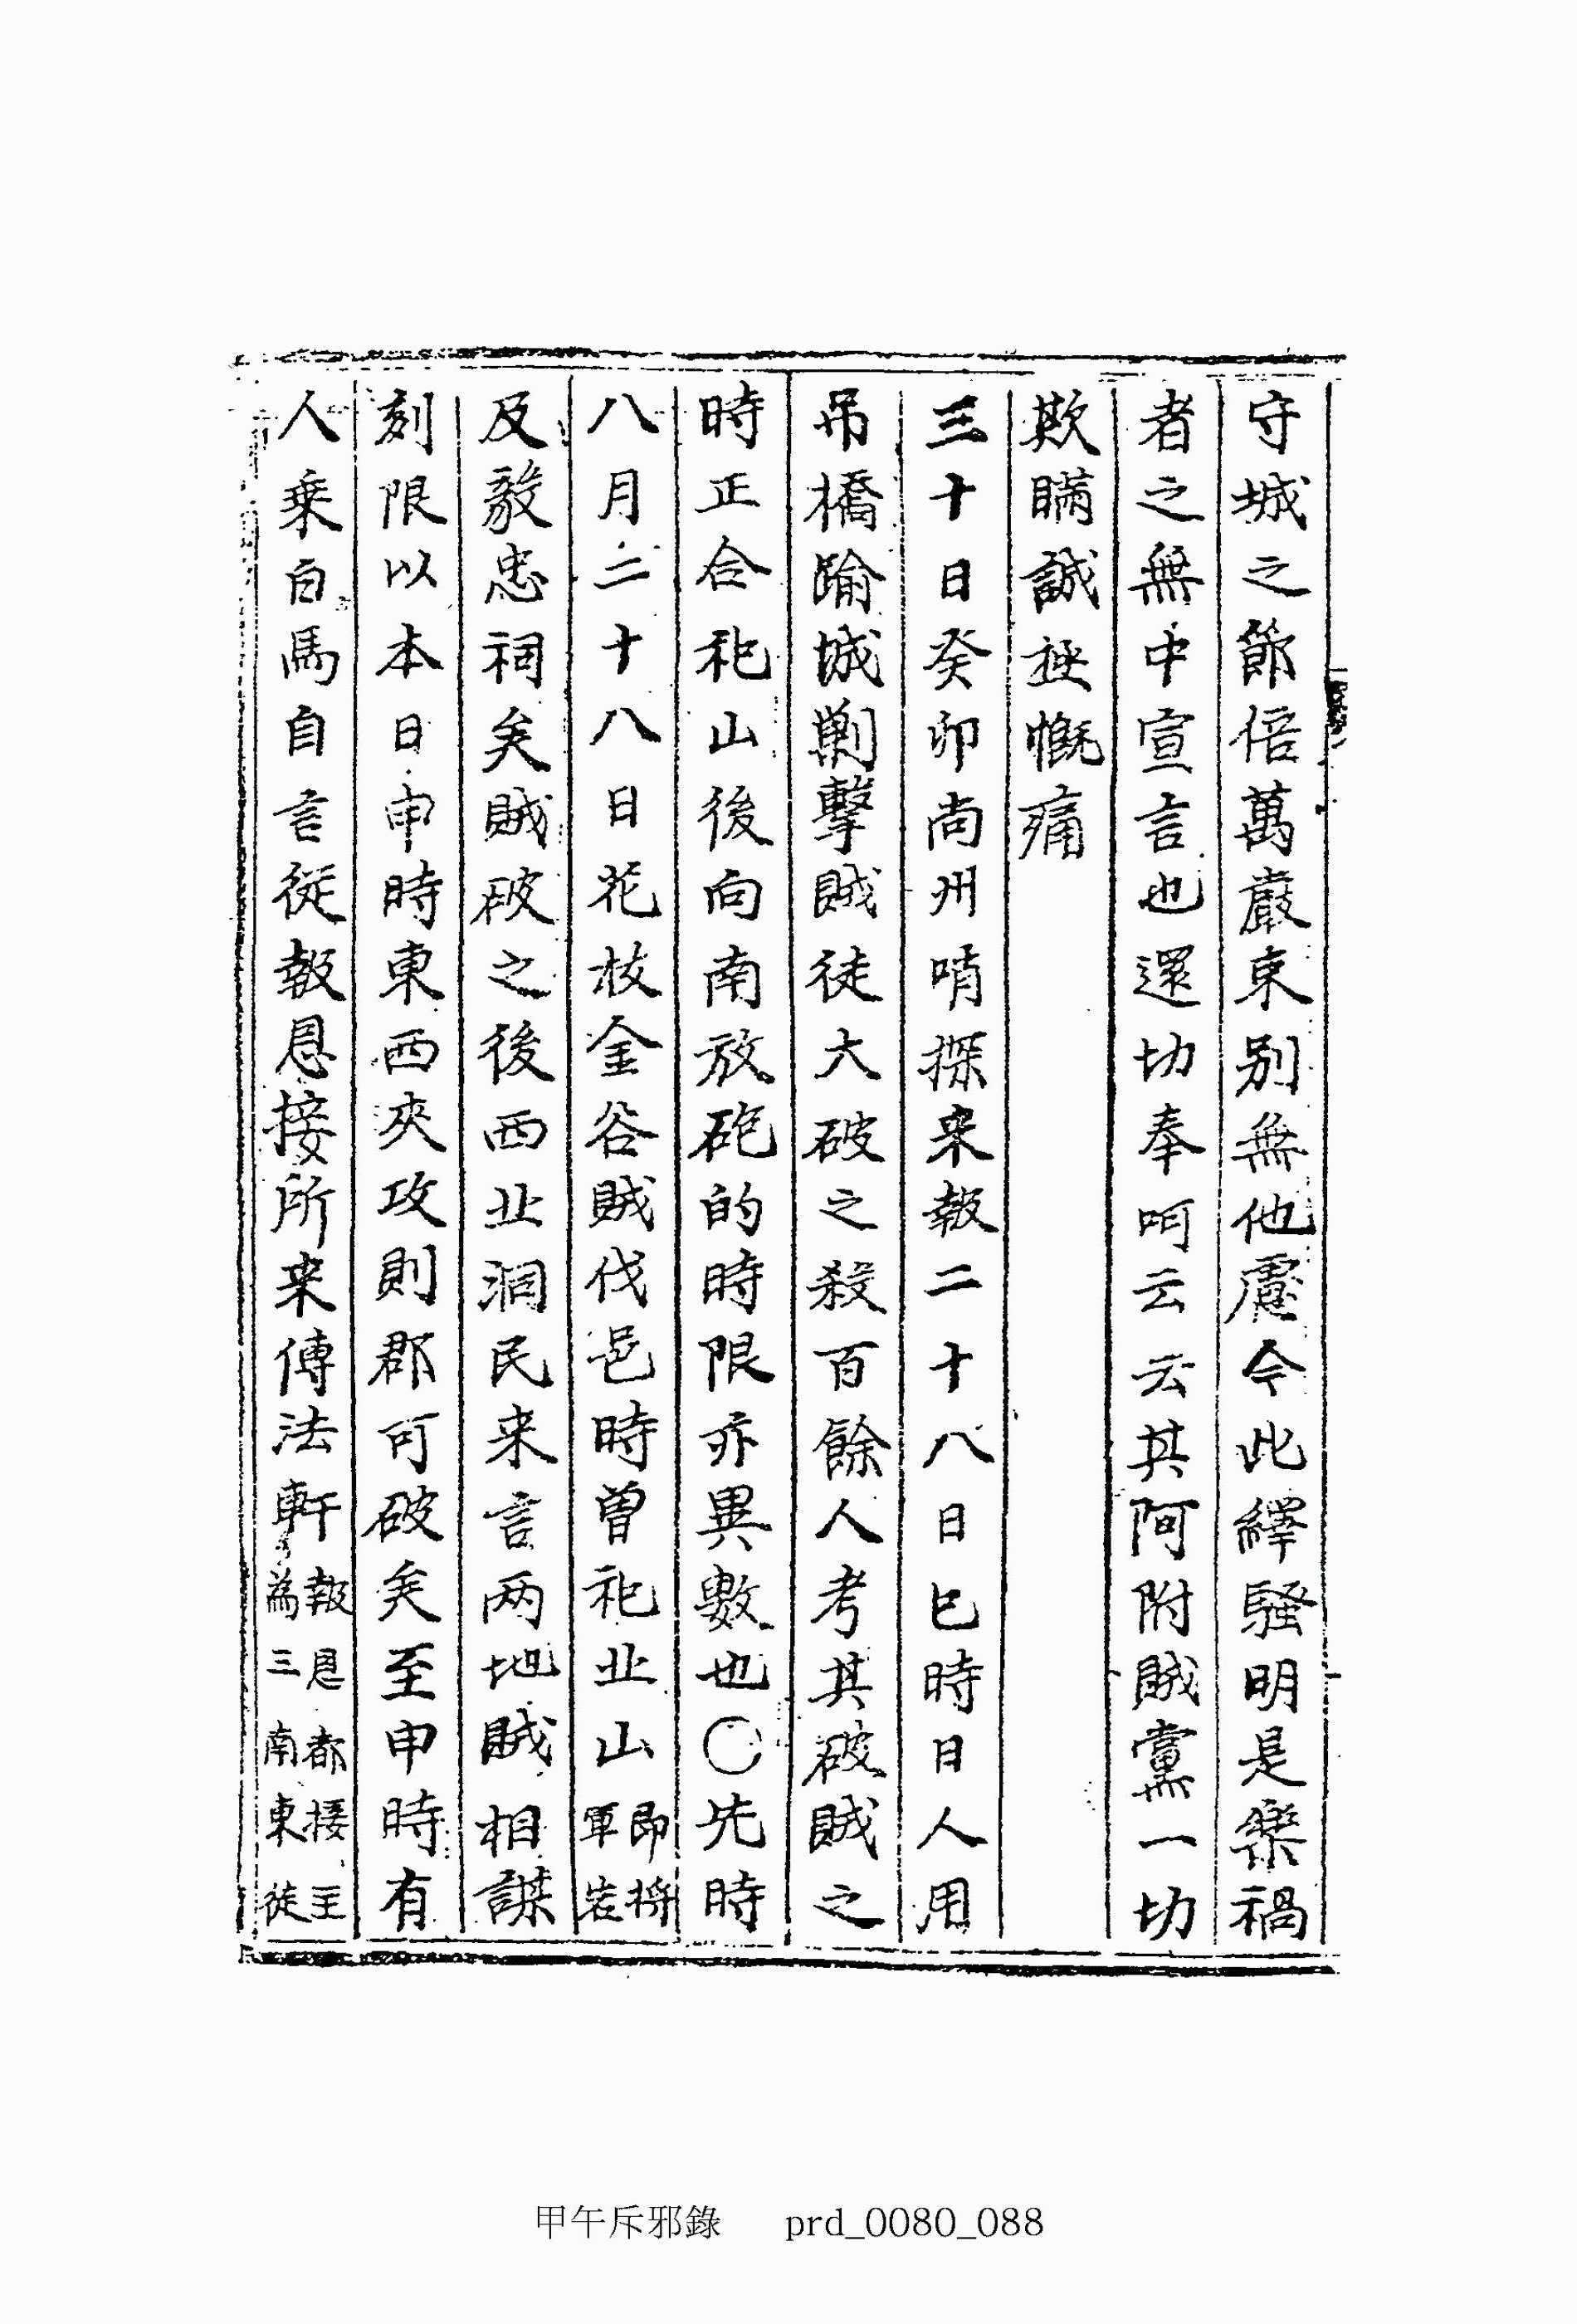 守城之節倍萬嚴束別無他慮今此繹騷明是樂禍
者之無中宣言也還切奉呵云云其阿附賊黨一切
欺瞞誠極慨痛
三十日癸卯尚州哨探来報二十八日巳時日人用
吊橋踰城剿擊賊徒大破之殺百餘人考其破賊之
時正合祀山後向南放砲的時限亦異數也〇先時
八月二十八日花枝金谷賊伐邑時曾祀北山即將軍岩
及毅忠祠矣賊破之後西北洞民来言两地賊相謀
刻限以本日申時東西夾攻則郡可破矣至申時有
人乗白馬自言從報恩接所来傳法軒報恩都接主為三南東徒
甲午斥邪錄 prd_0080_088